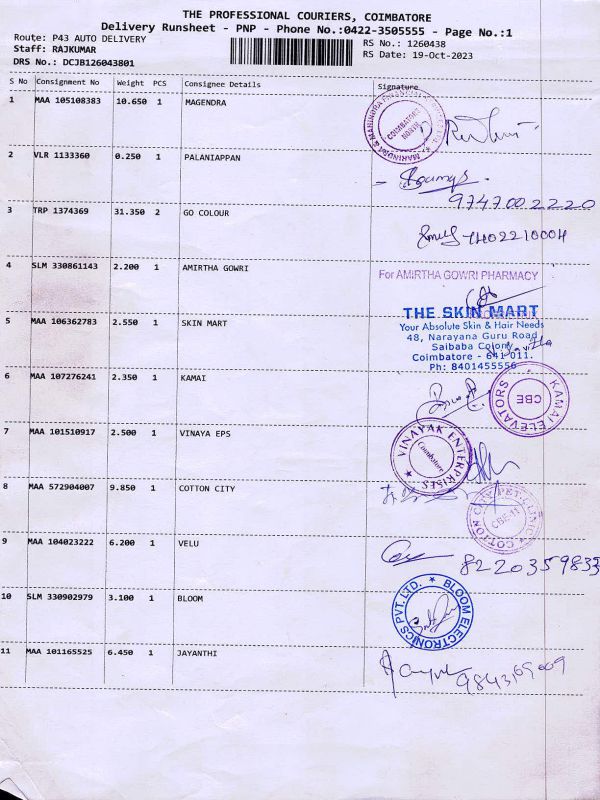 THE PROFESSIONAL COURIERS, COIMBATORE
Delivery Runsheet - PNP - Phone No.:0422-3505555 - Page No.:1
Route: P43 AUTO DELIVERY
RS No.: 1260438
Staff: RAJKUMAR
RS Date: 19-Oct-2023
DRS No.: DCJB126043801
S No Consignment No Weight PCS Consignee Details Signature
1 MAA 105108383 10.650 1 MAGENDRA
COIMBATORE NORTH
2 VLR 1133360 0.250 1 PALANIAPPAN
9747002220
3 TRP 1374369 31.350 2 GO COLOUR
4 SLM 330861143 2.200 1 AMIRTHA GOWRI
For AMIRTHA GOWRI PHARMACY
5 MAA 106362783 2.550 1 SKIN MART
THE SKIN MART
Your Absolute Skin & Hair Needs
48, Narayana Guru Road
Saibaba Colony,
Coimbatore - 641 011.
Ph: 8401455556
6 MAA 107276241 2.350 1 KAMAI
KAMAI ELEVATORS
CBE
7 MAA 101510917 2.500 1 VINAYA EPS
VINAYAK ENTERPRISES
Coimbatore
8 MAA 572904007 9.850 1 COTTON CITY
COTTON CITY PET CLINIC
CBE-11
9 MAA 104023222 6.200 1 VELU
8220359833
10 SLM 330902979 3.100 1 BLOOM
BLOOM ELECTRONICS PVT. LTD.
11 MAA 101165525 6.450 1 JAYANTHI
9843169009